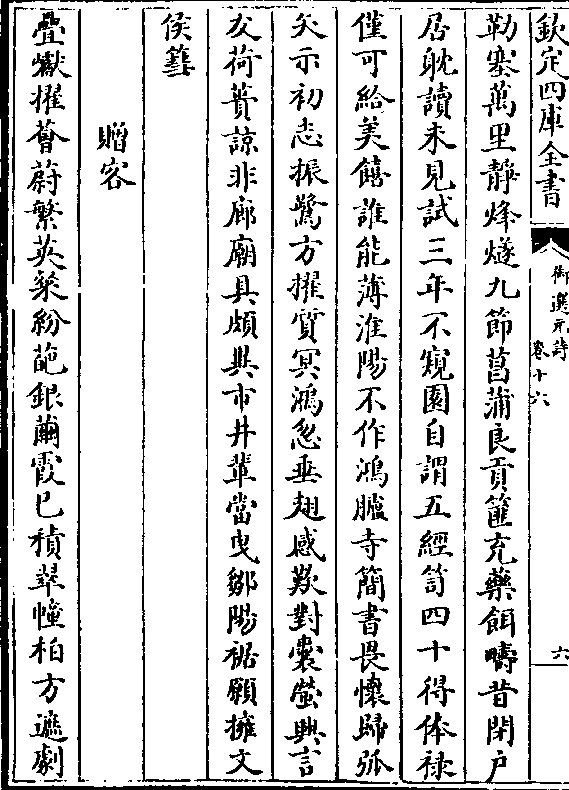 欽定四庫全書
御選元詩
卷十六
六
勒塞萬里靜烽燧九節菖蒲良貢篚充藥餌疇昔閉户
居躭讀未見試三年不窺園自謂五經笥四十得俸禄
僅可給美饎誰能薄淮陽不作鴻臚寺簡書畏懷歸弧
矢示初志振鷺方擢質冥鴻忽垂翅感歎對囊螢興言
友荷蕢諒非廊廟具頗與市井輩當曳鄒陽裾願擁文
侯篲
贈客
疊巘擢薈蔚繁英粲紛葩銀繭霞已積翠幢柏方遮劇